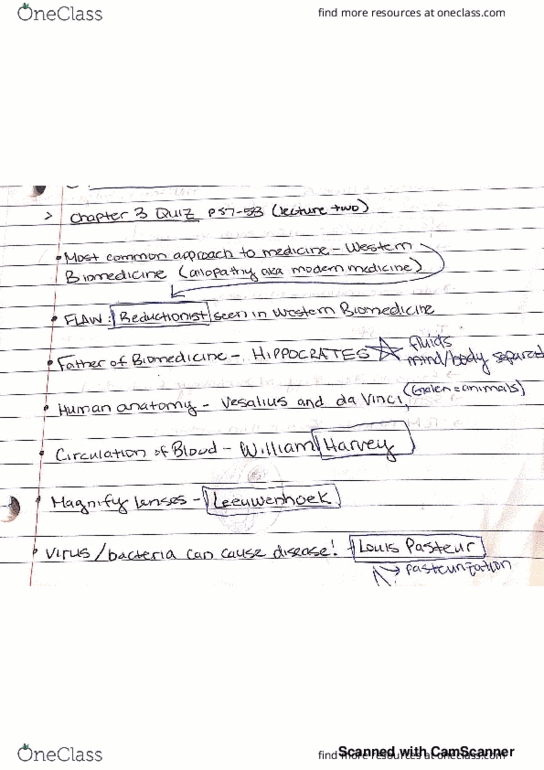 OneClass
find more resources at oneclass.com
> Chapter 3 QUIZ P57-58 (lecture two)
• Most common approach to medicine - Western
Biomedicine (allopathy aka modern medicine)
• FLAW: Reductionist seen in Western Biomedicine
• Father of Biomedicine - HIPPOCRATES fluids
mind/body separated
• Human anatomy - Vesalius and da Vinci, (Galen = animals)
• Circulation of Blood - William Harvey
• Magnify lenses - Leeuwenhoek
• Virus/bacteria can cause disease! - Louis Pasteur
→ pasteurization
OneClass
find more resources at oneclass.com
Scanned with CamScanner